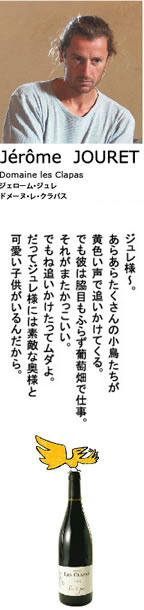 Jérôme JOURET
Domaine les Clapas
ジェローム・ジュレ
ドメーヌ・レ・クラパス
ジュレ様〜。
あらあらたくさんの小鳥たちが
黄色い声で追いかけてくる。
でも彼は脇目もふらず葡萄畑で仕事。
それがまたかっこいい。
でもね追いかけたってムダよ。
だってジュレ様には素敵な奥様と
可愛い子供がいるんだから。
LES CLAPAS